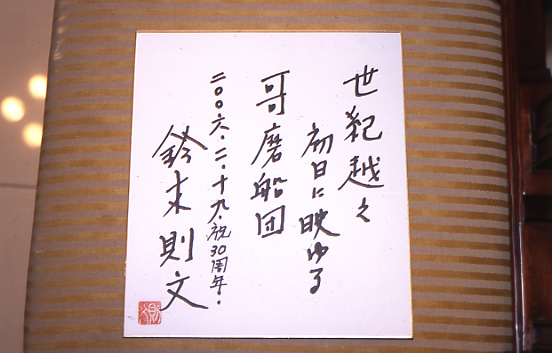 世紀越え
初日に映ゆる
哥麿船団
二〇〇六.二.十九.祝30周年.
鈴木則文